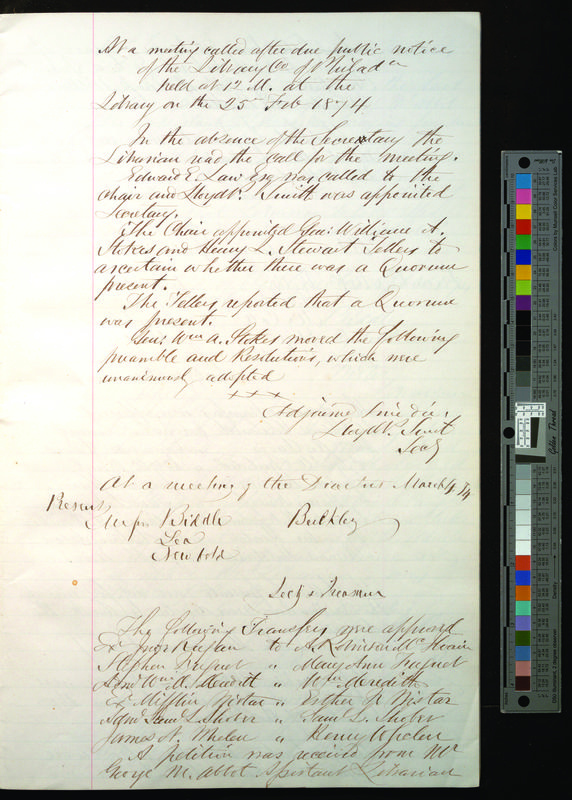 At a meeting called after due public notice
of the Library Co of Philada
held at 12 M. at the
Library on the 25 Feb 1874.
In the absence of the Secretary the
Librarian read the call for the meeting.
Edward E. Law Esq was called to the
Chair and Lloyd P. Smith was appointed
Secretary.
The Chair appointed Genl William A.
Stokes and Henry L. Stewart Tellers to
ascertain whether there was a Quorum
present.
The Tellers reported that a Quorum
was present.
Genl Wm A. Stokes moved the following
preamble and Resolutions, which were
unanimously adopted
x x x
Adjourned sine die,
Lloyd P. Smith
Secy
At a meeting of the Directors March 4 74
Present
Messrs Biddle Bulkley
Lea
Newbold
Secy & Treasurer
The following Transfers were approved
to A. Robinson McIlvain
Stephen Fuguet " Mary Ann Fuguet
Wm Meredith
Ex Mifflin Wistar " Esther F. Wistar
Adm Saml L. Shober " Saml L. Shober
James N. Whelen " Henry Whelen
A petition was received from Mr
George M. Abbot Assistant Librarian
Golden Thread